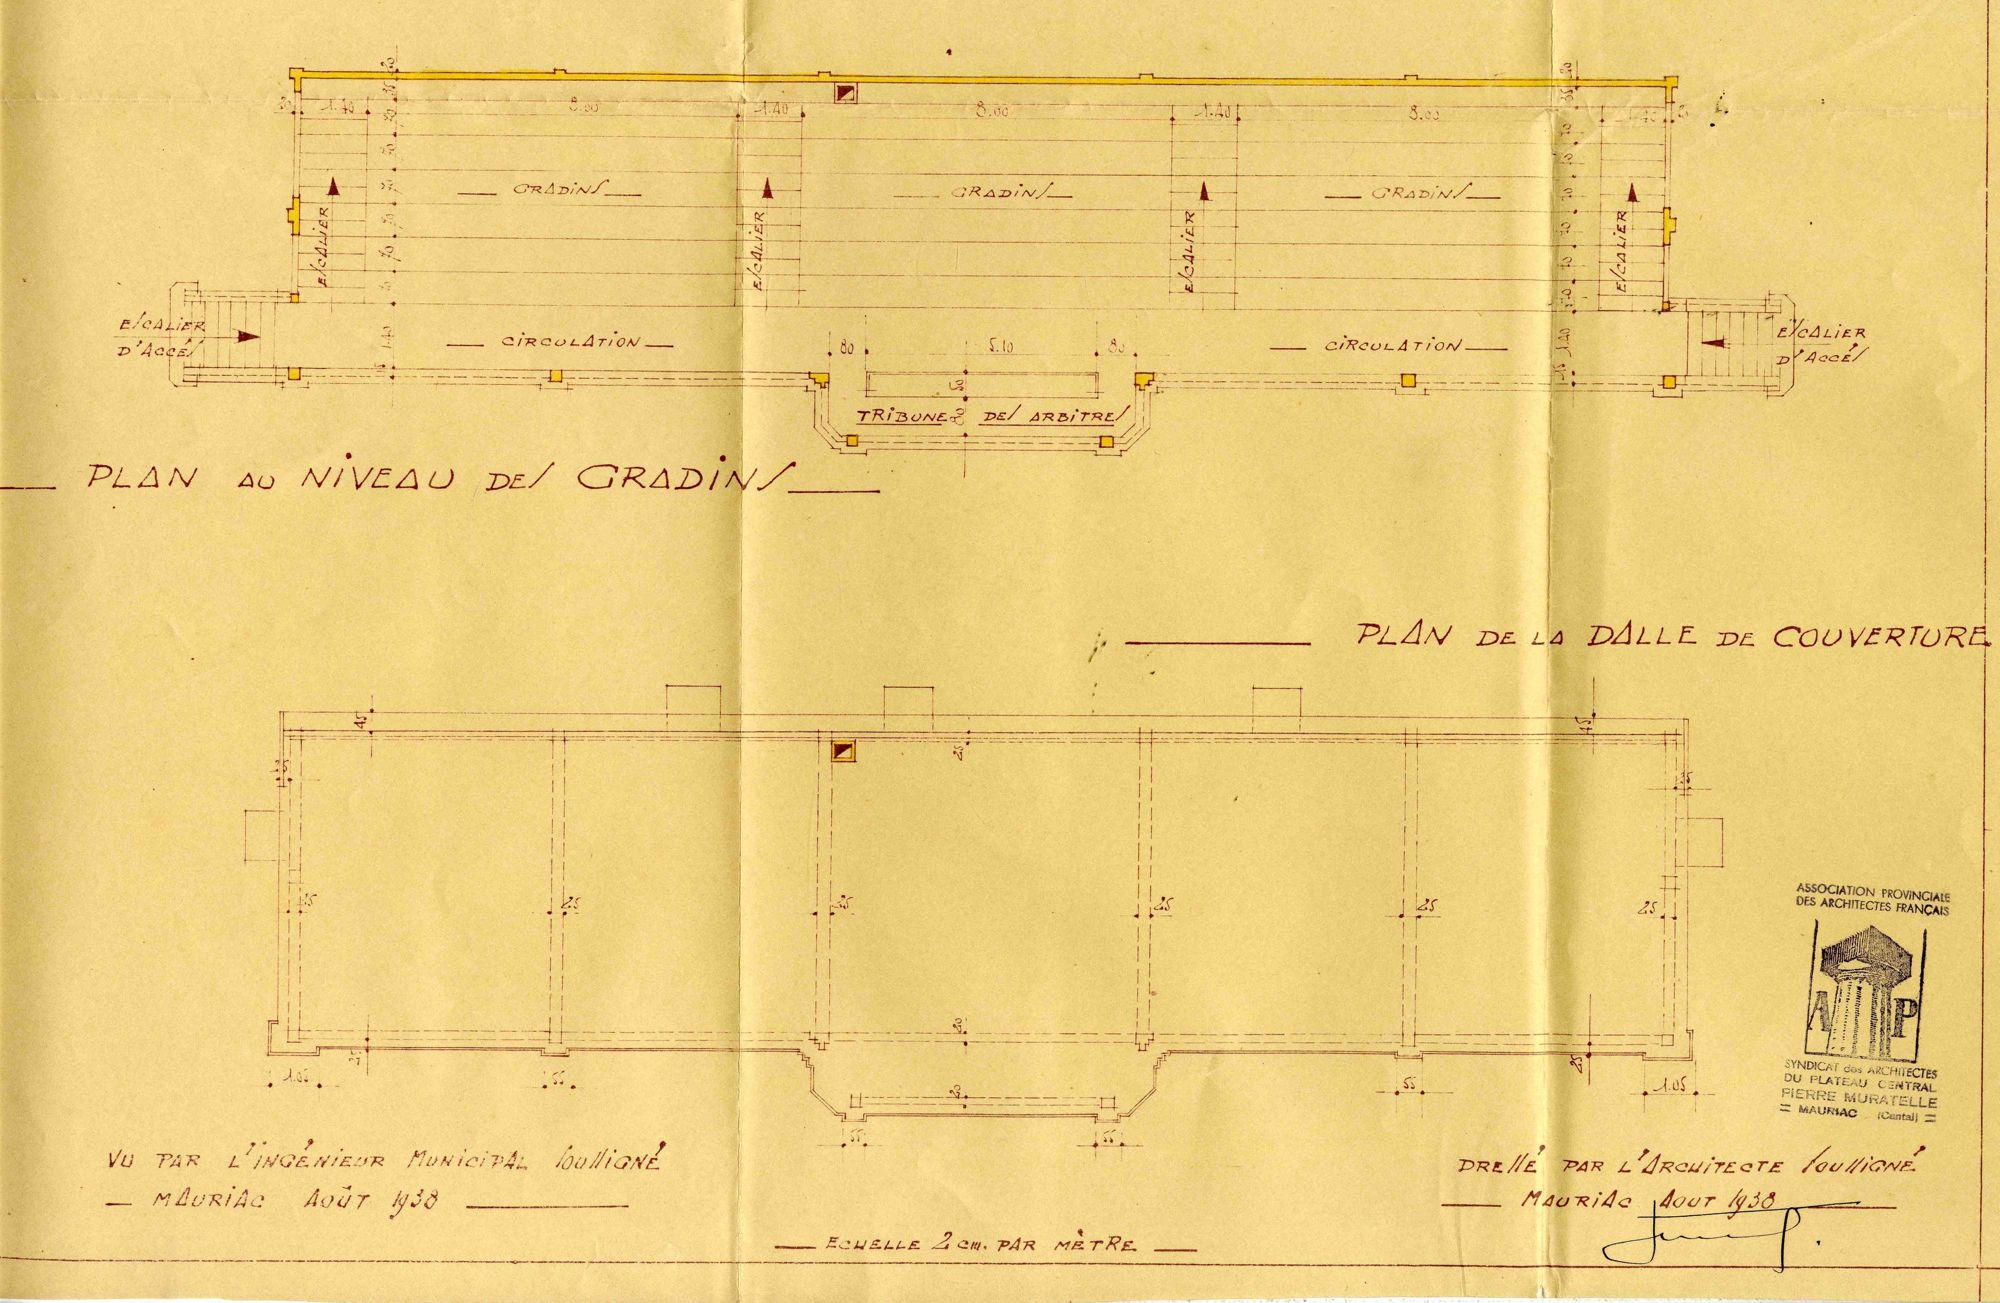 20 1.40 8.00 1.40 8.00 1.40 8.00 1.40 20
20
35
20
35
GRADINS GRADINS GRADINS
ESCALIER ESCALIER ESCALIER ESCALIER
ESCALIER
D'ACCÉS
CIRCULATION
CIRCULATION
ESCALIER
D'ACCÉS
1.40
1.40
15
80 5.10 80
50
TRIBUNE DES ARBITRES
80
PLAN AU NIVEAU DES GRADINS
PLAN DE LA DALLE DE COUVERTURE
45
45
25
35
35
25 25 25 25 25 25
20
20
25
25
1.05 55 55 1.05
55 55
ASSOCIATION PROVINCIALE
DES ARCHITECTES FRANÇAIS
A P
SYNDICAT des ARCHITECTES
DU PLATEAU CENTRAL
PIERRE MURATELLE
= MAURIAC (Cantal) =
VU PAR L'INGÉNIEUR MUNICIPAL SOUSSIGNÉ
MAURIAC AOÛT 1938
DRESSÉ PAR L'ARCHITECTE SOUSSIGNÉ
MAURIAC AOUT 1938
ECHELLE 2 cm. PAR MÈTRE